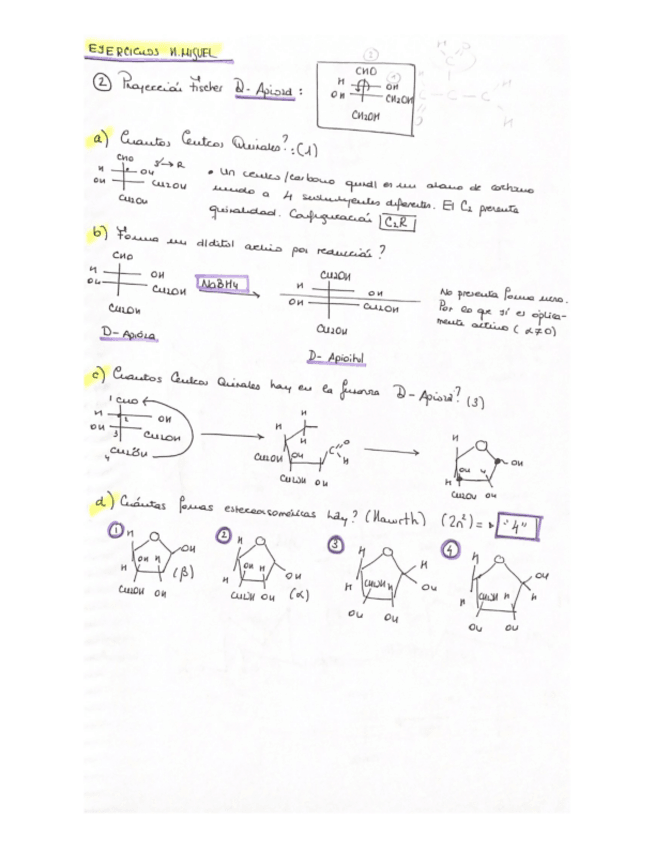 EJERCICIOS N.MIGUEL
② Proyección Fischer D-Apiosa:
CHO
H OH
OH CH2OH
CH2OH
a) Cuantos Centros Quirales?:(1)
CHO
H OH S→R
OH CH2OH
CH2OH
• Un centro/carbono quiral es un atomo de carbono
unido a 4 sustituyentes diferentes. El C2 presenta
quiralidad. Configuración C2R
b) Forma un alditol activo por reducción?
CHO
H OH
OH CH2OH
CH2OH
D-Apiosa
NaBH4
CH2OH
H OH
OH CH2OH
CH2OH
D-Apioitol
No presenta forma meso.
Por lo que sí es óptica-
mente activo (α≠0)
c) Cuantos Centros Quirales hay en la furanosa D-Apiosa? (3)
1 CHO
H 2 OH
OH 3 CH2OH
4 CH2OH
H H
CH2OH OH C O
H
CH2OH OH
H O
OH H OH
H
CH2OH OH
d) Cuántas formas estereoisoméricas hay? (Haworth) (2n²)= "4"
① H O OH
H OH H (β)
CH2OH OH
② H O
H OH H OH
CH2OH OH (α)
③ H O H
H CH2OH H OH
OH OH
④ H O OH
H CH2OH H H
OH OH